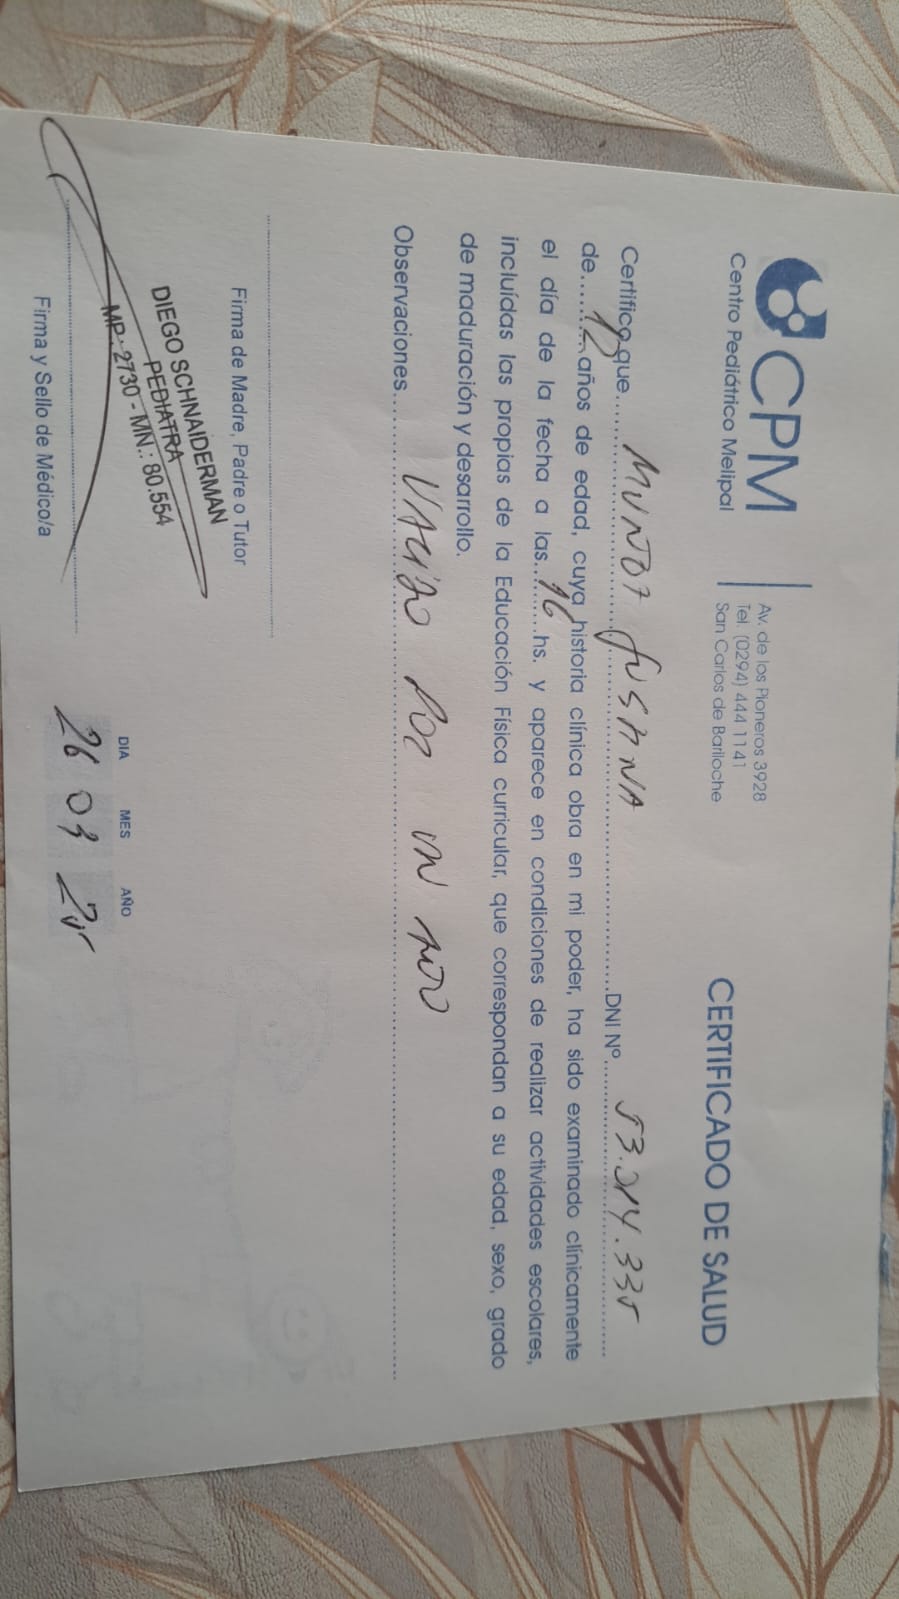 CPM
Centro Pediátrico Melipal
Av. de los Pioneros 3928
Tel. (0294) 444 1141
San Carlos de Bariloche
CERTIFICADO DE SALUD
Certifico que MUNOZ DNI Nº 53.214.335
de 12 años de edad, cuya historia clínica obra en mi poder, ha sido examinado clínicamente
el día de la fecha a las 16 hs. y aparece en condiciones de realizar actividades escolares,
incluídas las propias de la Educación Física curricular, que correspondan a su edad, sexo, grado
de maduración y desarrollo.
Observaciones VALIDO POR UN AÑO
Firma de Madre, Padre o Tutor
DIEGO SCHNAIDERMAN
PEDIATRA
MP: 2730 - MN.: 80.554
Firma y Sello de Médico/a
DIA MES AÑO
26 03 25